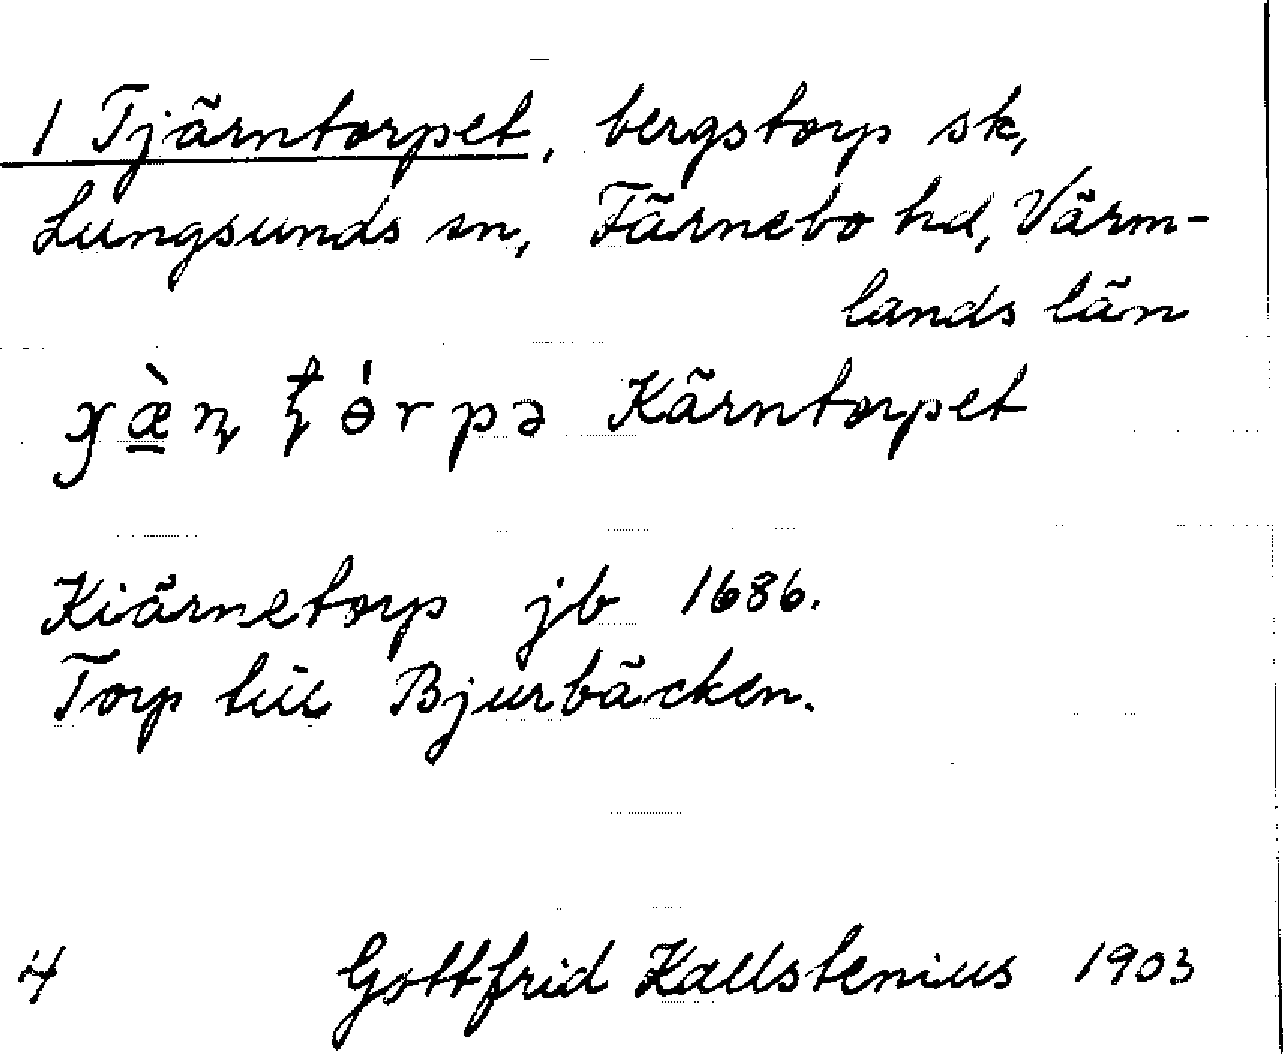 1 Tjärntorpet, bergstorp sk,
Lungsunds sn, Färnebo hd, Värm-
lands län
Kärntorpet
Kiärnetorp jb 1686.
Torp till Bjurbäcken.
4 Gottfrid Kallstenius 1903